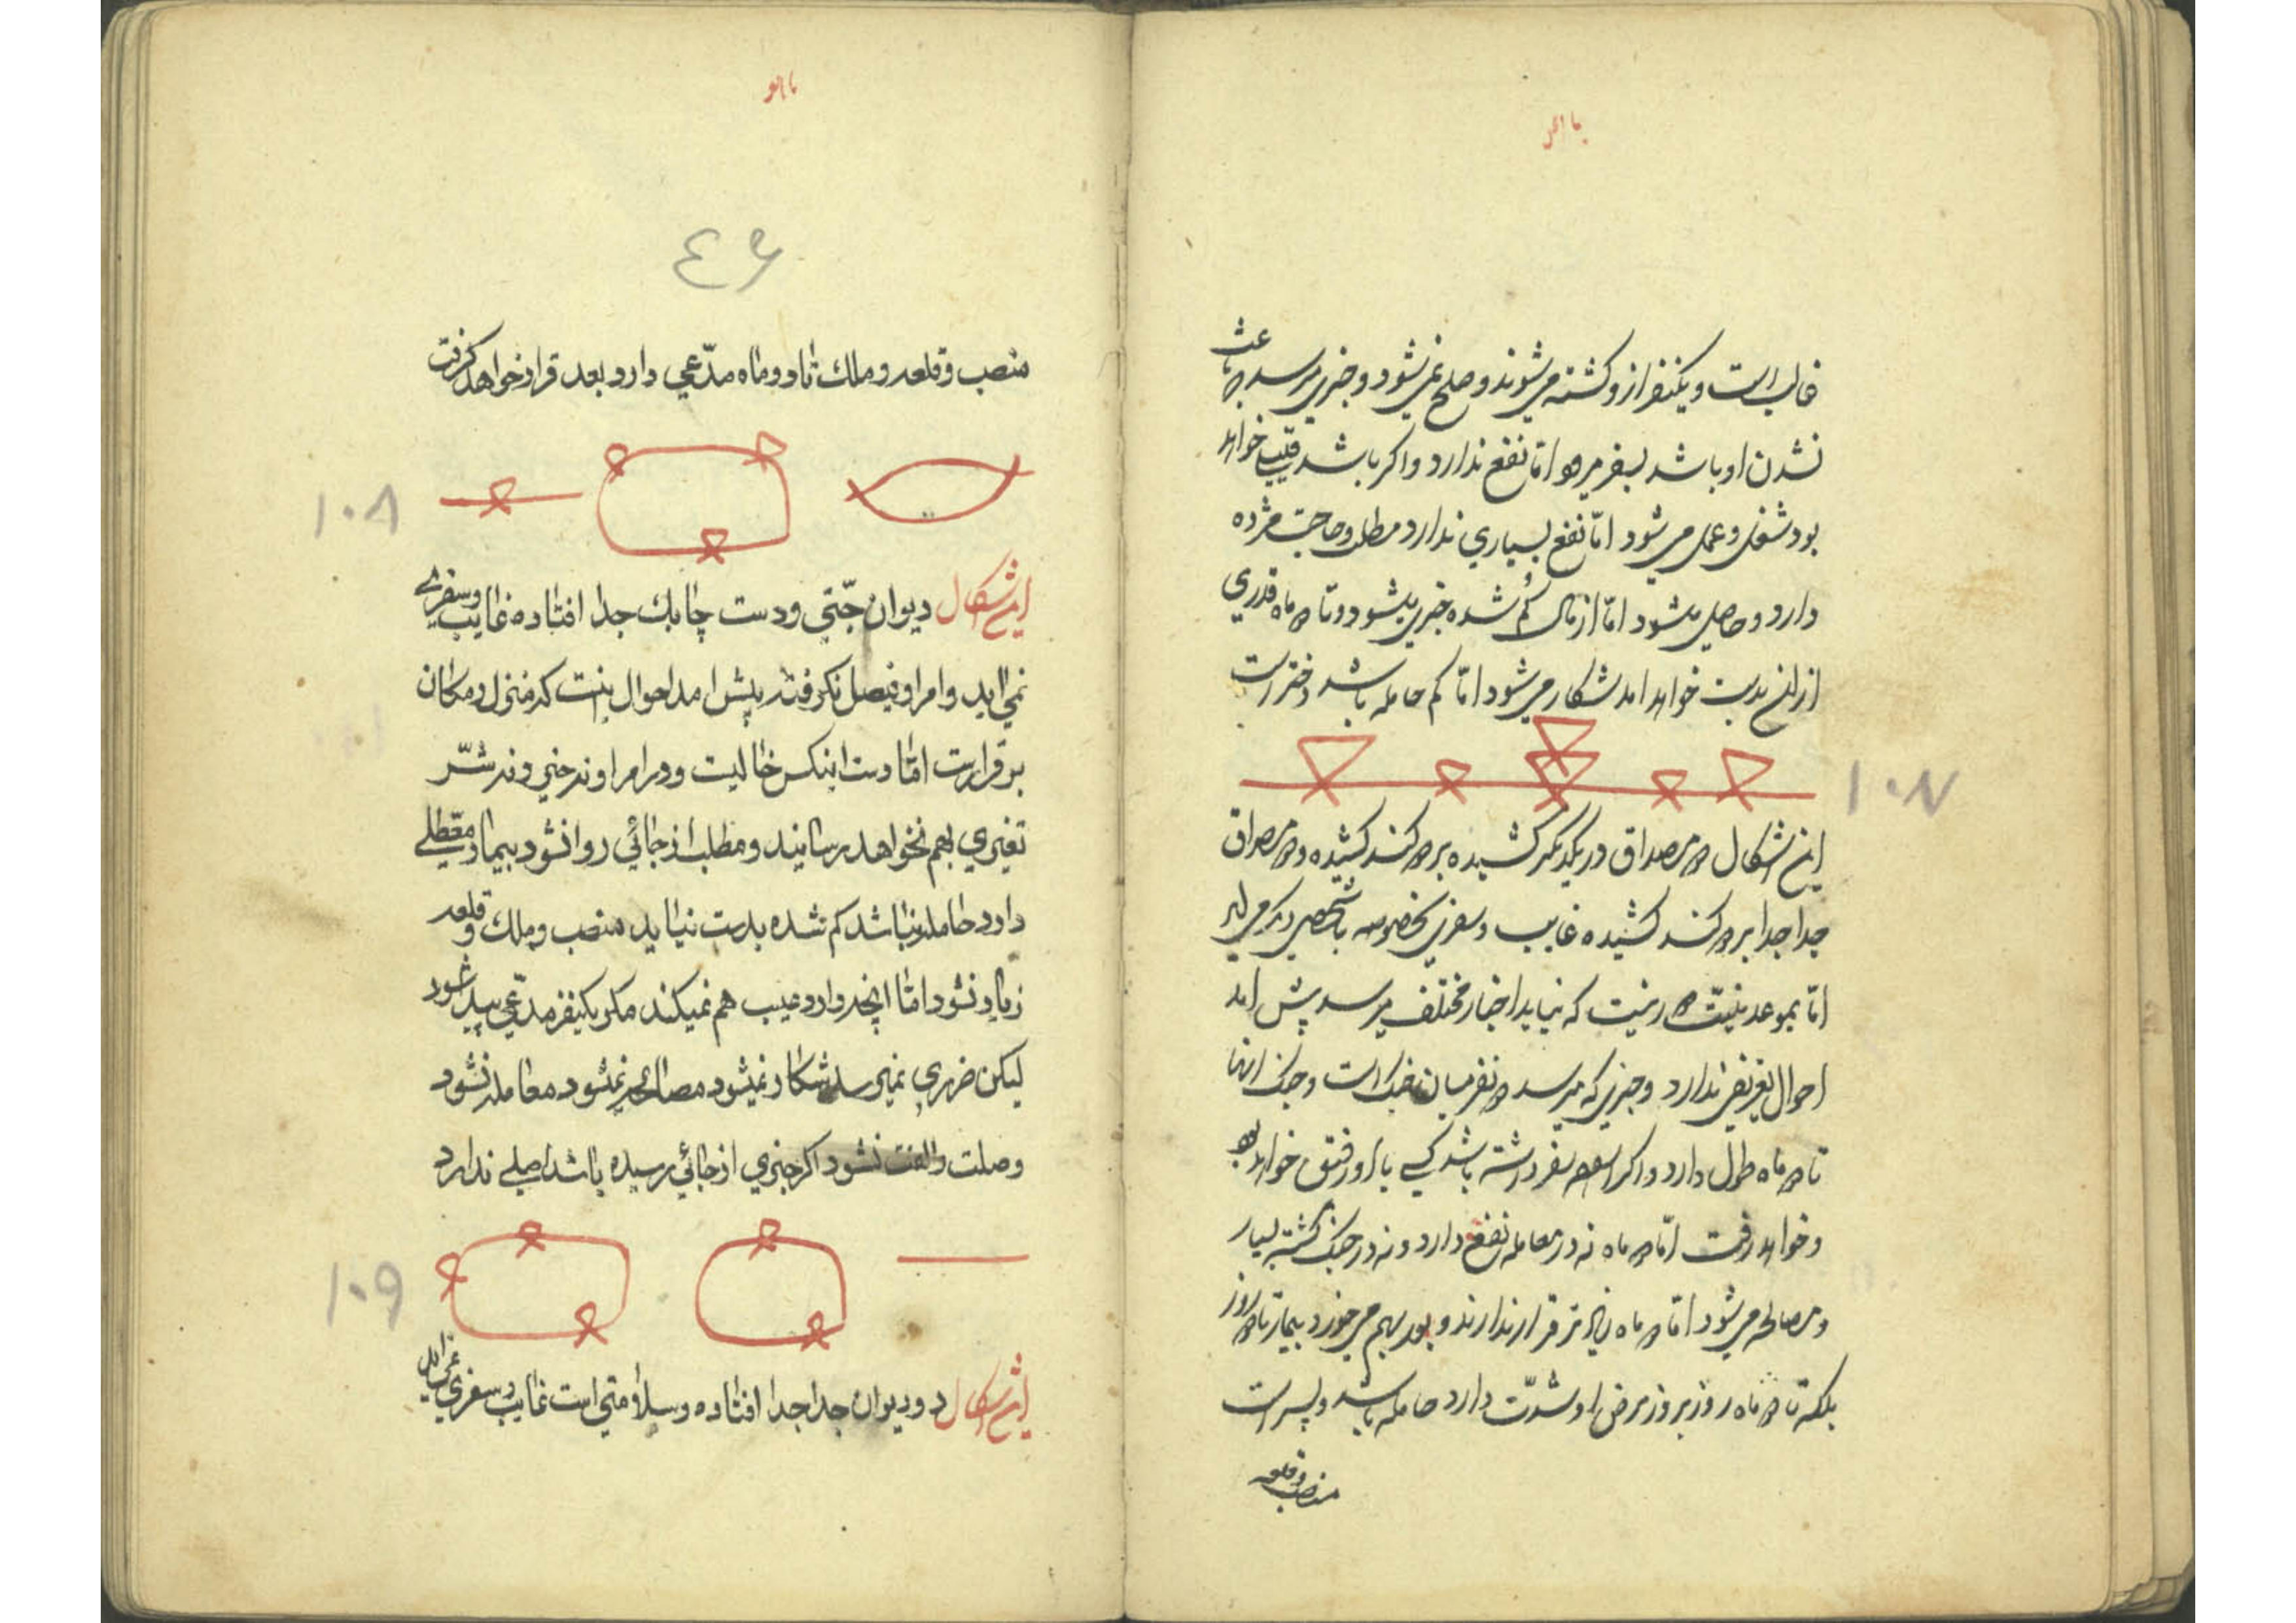 غالب است و یکنفر از و کشته می شوند و صلح نمی شود و خبری میرسد باعث
نشدن او باشد بسفر میرود اما نفع ندارد و اکر باشد قلیل خواهد
بود شغل و عمل می شود امّا نفع بسیاری ندارد مطلب و حاجت مژده
دارد و حاصل میشود امّا از مال کُم شده خبری میشود و تا دو ماه قدری
از ان بدست خواهد امد شکار می شود امّا کم حامله باشد دختر است
۱۰۷
این اشکال دو مصداق در یکدیکر کشیده بر دو کند کشیده و دو مصداق
جدا جدا بر دو کند کشیده غایب و سفری بخصوصه با شخصی دیکر می اید
امّا بموعد نیّت در نیت که نیاید اخبار مختلف میرسد پیش امد
احوال نقیض ندارد و خبری که میرسد دو نفر میان جنک است و جنک انها
تا دو ماه طول دارد و اکر اراده سفر داشته باشد کسی با او رفیق خواهد بود
و خواهد رفت امّا دو ماه نه در معامله نفع دارد و نه در جنک کشته بسیار
و مصالحه می شود امّا دو ماه زیاد تر قرار ندارند و بهم می خورد بیمار تا دو روز
بلکه تا دو ماه روز بروز مرض او شدّت دارد حامله باشد و پسر است
منصب و قلعه
٤۶
منصب و قلعه و ملك تا دو ماه مدّعی دارد بعد قرار خواهد کرفت
۱۰۸
این اشکال دیوان جتّی و دست چابك جدا افتاده غایب و سفری
نمی اید و امر او فیصل نکرفته پیش امد احوال نیت که منزل و مکان
بر قرارست امّا دست اینکس خالیست و در امر او نه خیر و نه شرّ
تغیری بهم نخواهد رسانید و مطلب از جائی روا نشود بیمار معطلی
دارد حامله نباشد کم شده بدست نیاید منصب و ملك و قلعه
زیاد نشود امّا انچه دارد عیب هم نمیکند مکر یکنفر مدّعی پیدا شود
لیکن ضرری نمیرسد شکار نمیشود مصالحه نمیشود معامله نشود
وصلت و الفت نشود اکر خبری از جائی رسیده باشد اصلی ندارد
۱۰۹
این اشکال دو دیوان جدا جدا افتاده و سلامتی است غایب و سفری می اید